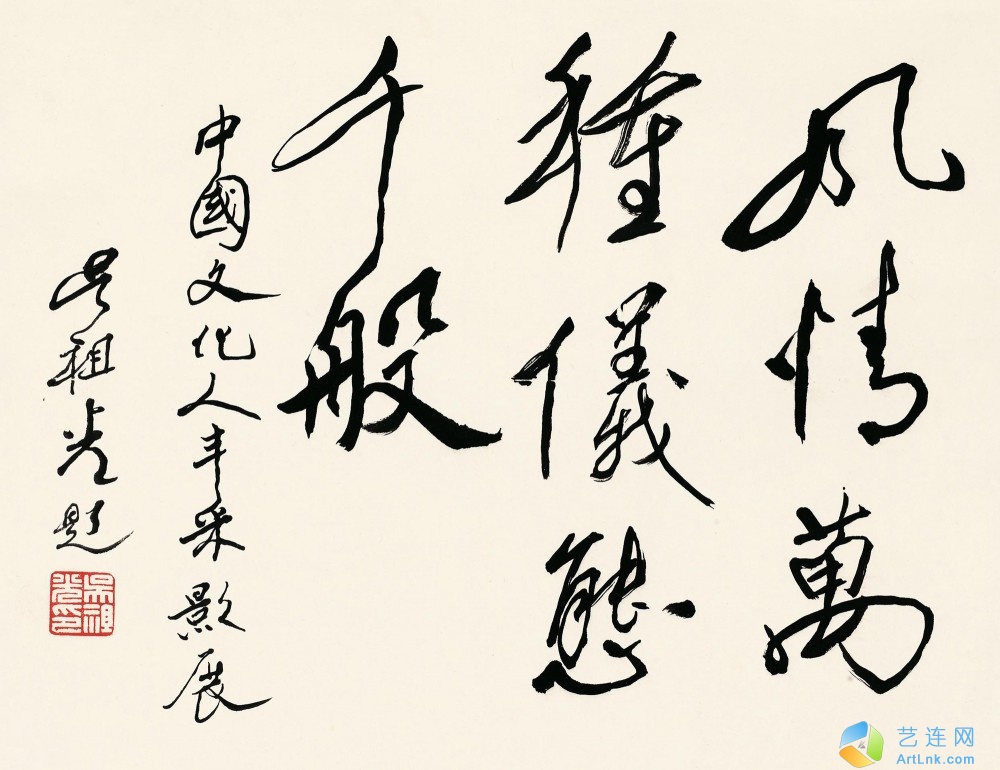 风情萬
種儀態
千般
中國文化人丰采影展
吴祖光题
吴祖光印
艺连网
ArtLnk.com